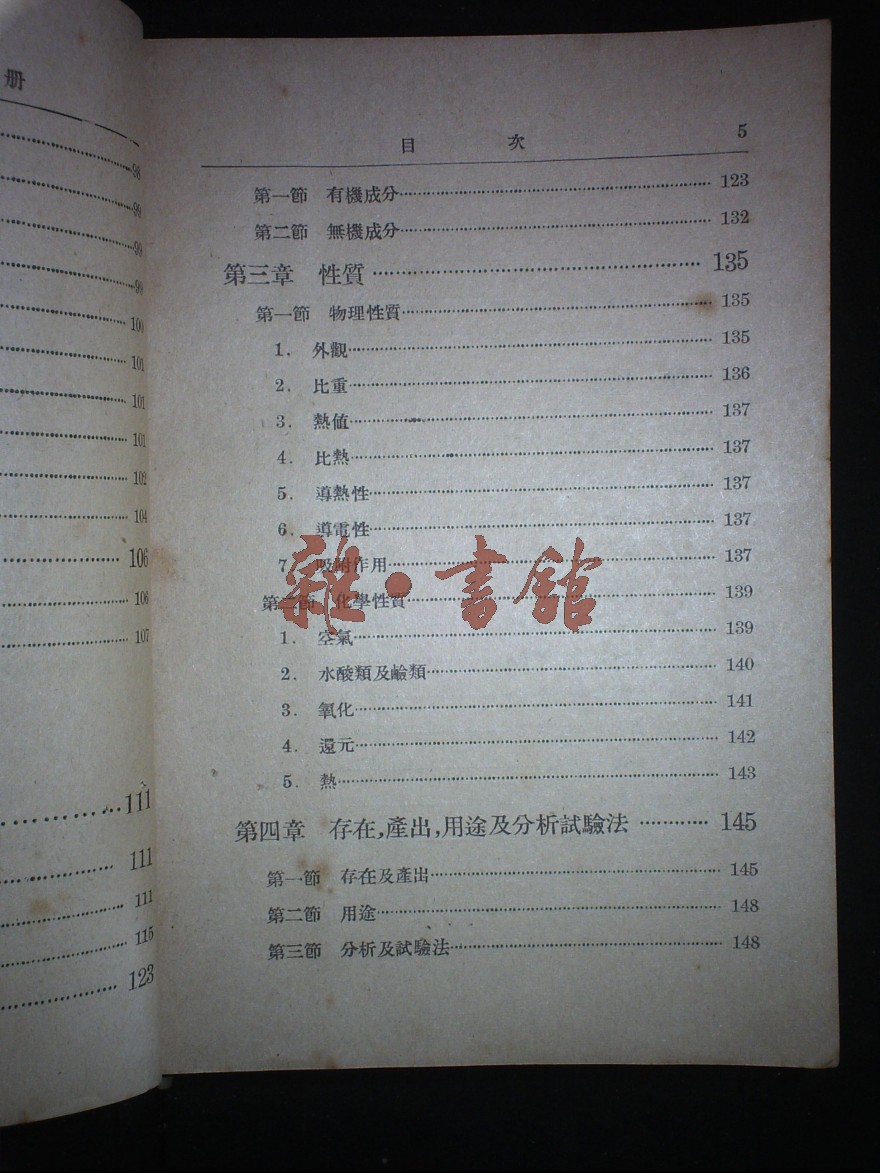 册
98
99
99
99
100
101
101
101
102
104
106
106
107
111
111
111
115
123
目 次 5
第一節 有機成分 123
第二節 無機成分 132
第三章 性質 135
第一節 物理性質 135
1. 外觀 135
2. 比重 136
3. 熱値 137
4. 比熱 137
5. 導熱性 137
6. 導電性 137
7. 吸附作用 137
第二節 化學性質 139
1. 空氣 139
2. 水酸類及鹼類 140
3. 氧化 141
4. 還元 142
5. 熱 143
第四章 存在,產出,用途及分析試驗法 145
第一節 存在及產出 145
第二節 用途 148
第三節 分析及試驗法 148
雜·書館